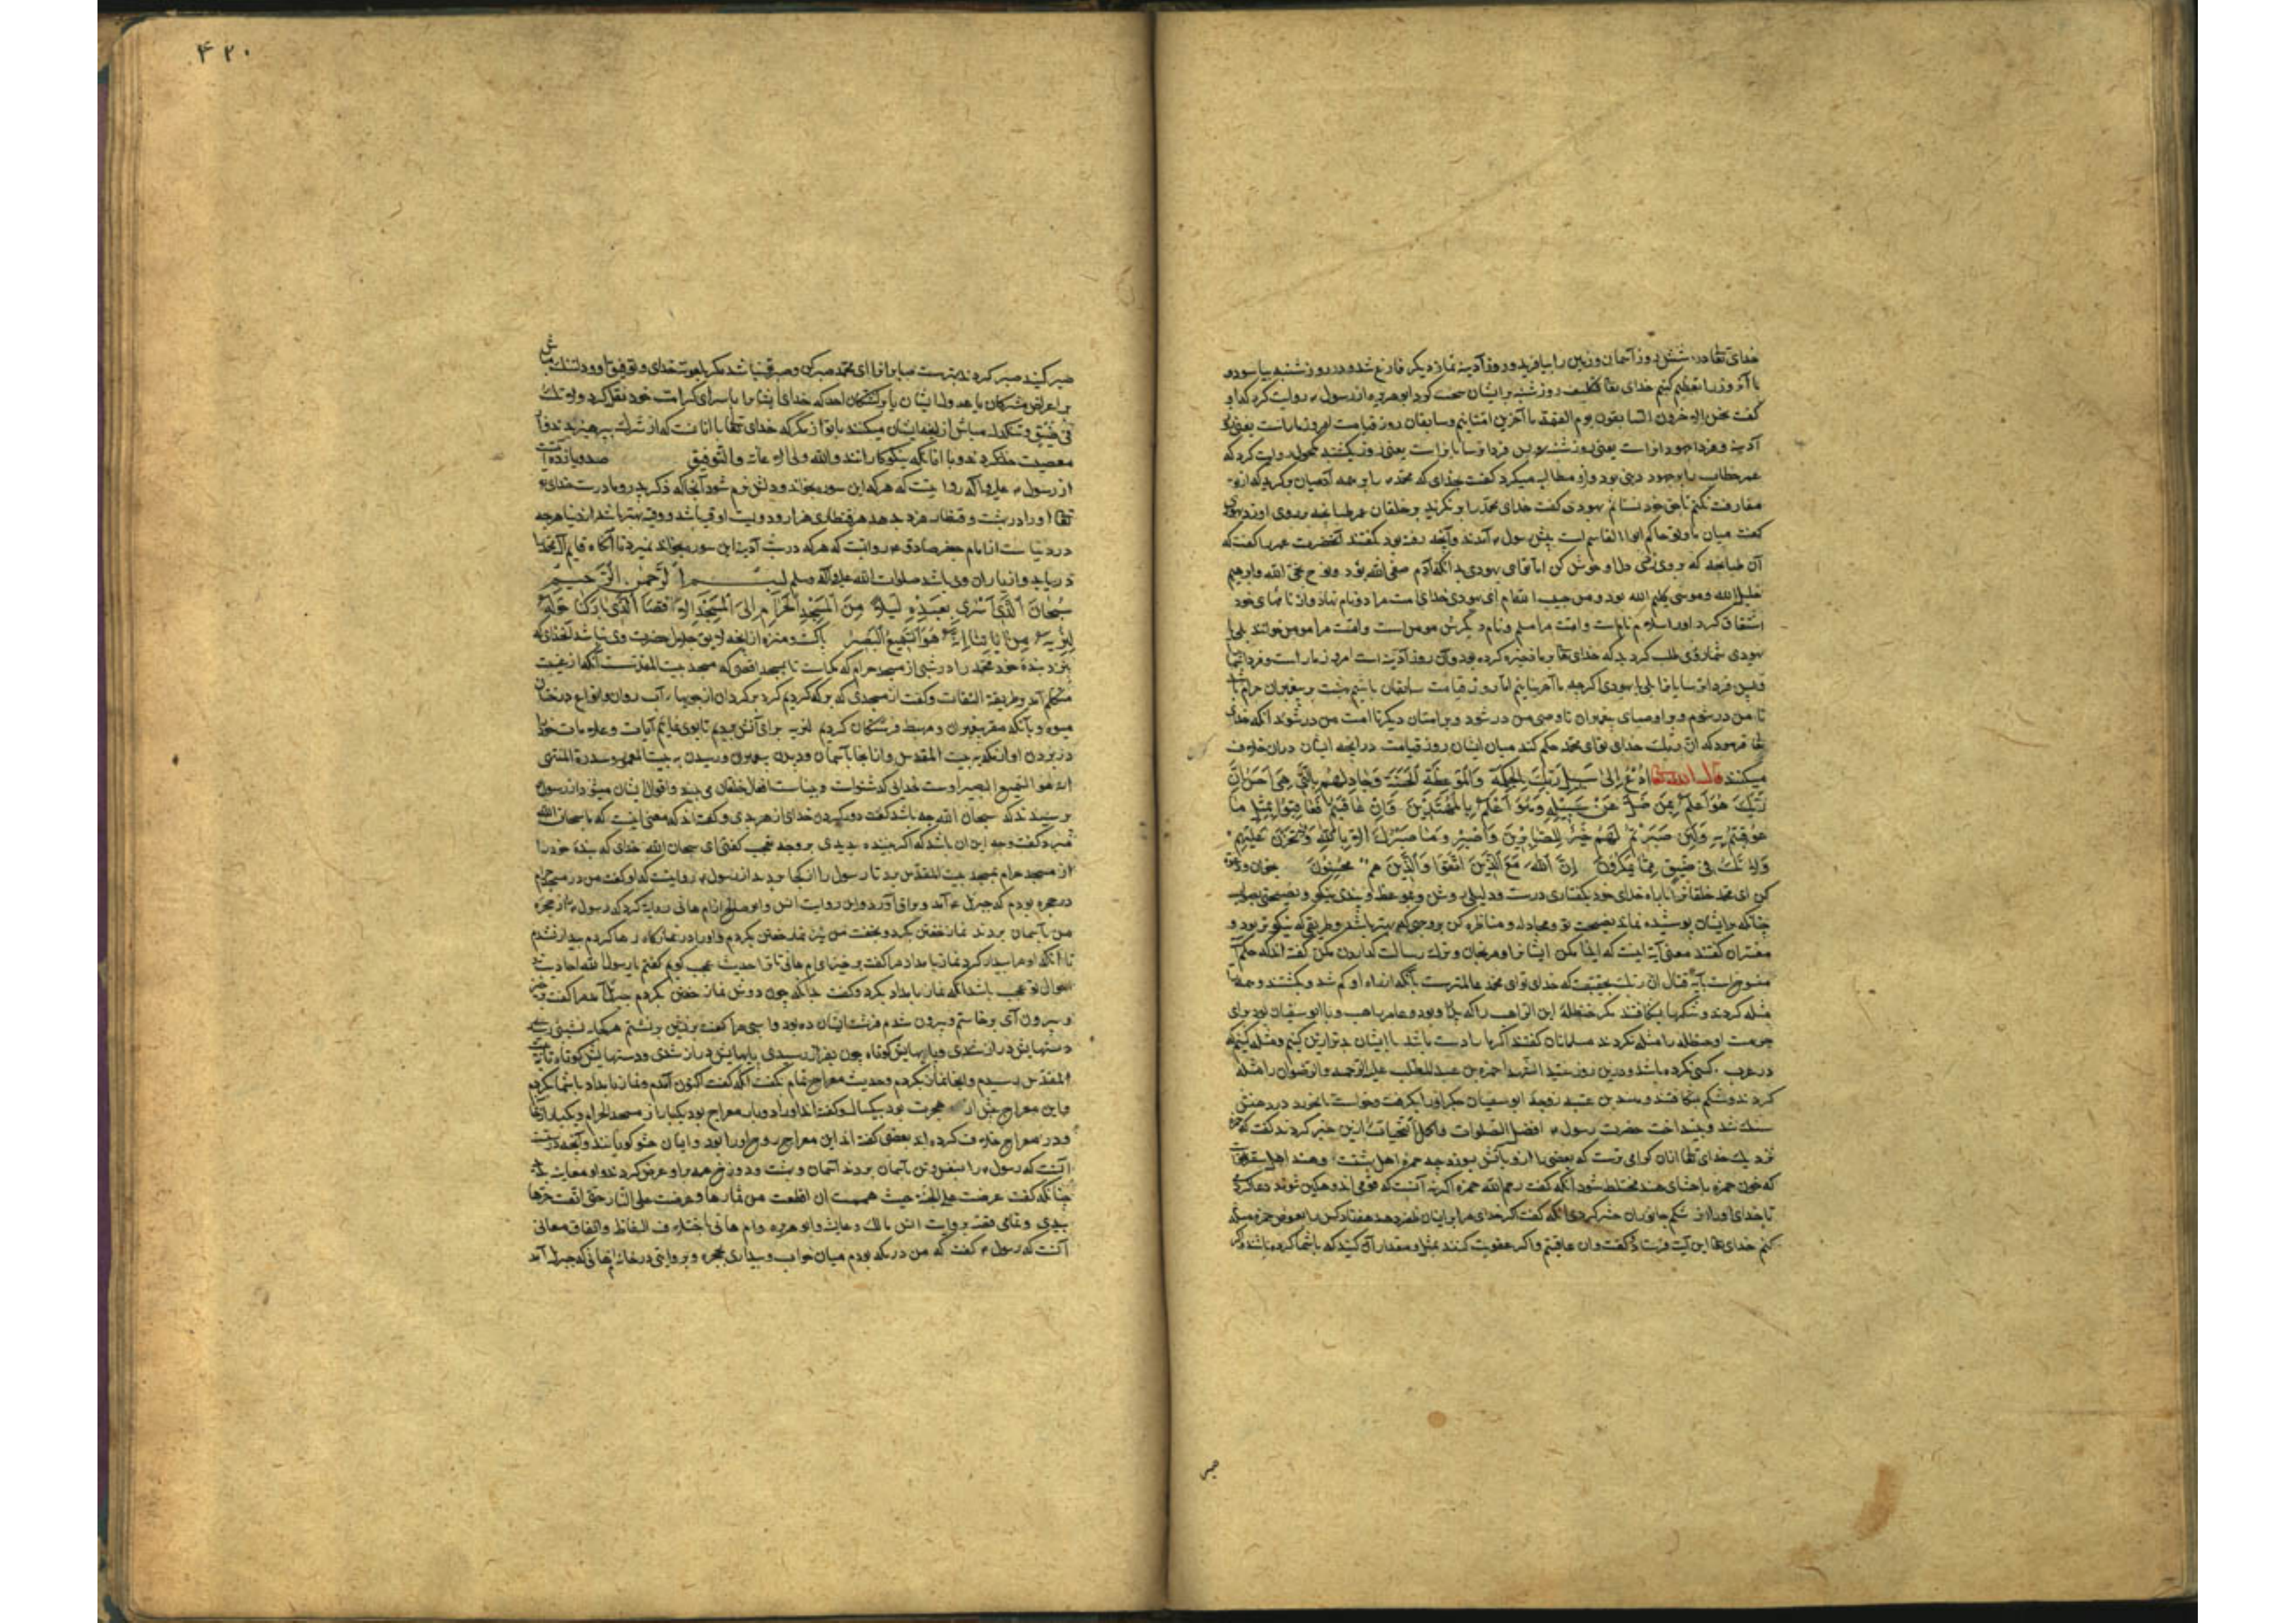 خدای تعالی در شش روز آسمان و زمین را بیافرید و روز آدینه نماز دیگر فارغ شد و در روز شنبه بیاسود و
ما آن روز را تعظیم کنیم خدای تعالی روز شنبه بر ایشان سخت کرد ابوهریره از رسول روایت کرد که او
گفت نحن الآخرون السابقون یوم القیمة ما آخرین امتانیم و سابقان روز قیامت امروز ماراست یعنی
آدینه و فردا جهودانراست یعنی روز شنبه پس فردا ترسایانراست یعنی روز یکشنبه مکحول روایت کرد که
عمر خطاب را بر جهود دینی بود و ازو مطالبه میکرد گفت بخدای که محمد را بر همه آدمیان برگزید که از تو
مفارقت نکنم تا حق خود نستانم یهودی گفت خدای محمد را برنگزید بر خلقان عمر طبانچه بر روی او زد
گفت میان ما و تو حاکم ابوالقاسم است پیش رسول آمدند و آنچه رفته بود گفتند آنحضرت عمر را گفت که
آن طبانچه که بر وی زدی حلال و خوش کن اما تو ای یهودی بدانکه آدم صفی الله بود و نوح نجی الله و ابرهیم
خلیل الله و موسی کلیم الله بود و من حبیب الله ام ای یهودی خدای راست مرا دو نام نهاد و از نامهای خود
اشتقاق کرد او را سلام نام است و امت مرا مسلم و نام دیگرش مومن است و امت مرا مومن خوانند بلی
یهودی شما روزی طلب کردید که خدای تعالی برما ذخیره کرده بود و آن روز آدینه است امروز ماراست و فردا شما
و پس فردا ترسایانرا بلی یهودی اگرچه ما آخرینانیم اما روز قیامت سابقان باشیم بهشت بر پیغبران حرام
تا من در شوم و بر اوصیای پیغمبران تا وصی من در شود و بر امتان دیگر تا امت من در شوند آنکه خدای
تعالی فرمود که ان ربک خدای تو ای محمد حکم کند میان ایشان روز قیامت در آنچه ایشان در آن خلاف
میکنند قال الله تعالی ادْعُ إِلىٰ سَبِیلِ رَبِّكَ بِالْحِكْمَةِ وَالْمَوْعِظَةِ الْحَسَنَةِ وَجَادِلْهُمْ بِالَّتِي هِيَ أَحْسَنُ إِنَّ
رَبَّكَ هُوَ أَعْلَمُ بِمَنْ ضَلَّ عَنْ سَبِيلِهِ وَهُوَ أَعْلَمُ بِالْمُهْتَدِينَ وَإِنْ عَاقَبْتُمْ فَعَاقِبُوا بِمِثْلِ مَا
عُوقِبْتُمْ بِهِ وَلَئِنْ صَبَرْتُمْ لَهُوَ خَيْرٌ لِلصَّابِرِينَ وَاصْبِرْ وَمَا صَبْرُكَ إِلَّا بِاللَّهِ وَلَا تَحْزَنْ عَلَيْهِمْ
وَلَا تَكُ فِي ضَيْقٍ مِمَّا يَمْكُرُونَ إِنَّ اللَّهَ مَعَ الَّذِينَ اتَّقَوْا وَالَّذِينَ هُمْ مُحْسِنُونَ بخوان و دعوت
کن ای محمد خلقانرا با راه خدای خود بگفتاری درست و دلیلی روشن و بموعظه و پندی نیکو و نصیحتی
چنانکه بر ایشان پوشیده نماند نصیحت تو و مجادله و مناظره کن بر وجهی که بهتر باشد و طریقی که نیکوتر بود و
مفسران گفتند معنی آیه اینست که ایذا مکن ایشانرا و مرنجان و ترک رسالت گذاردن مکن گفته اند که حکم آیه
منسوخ است بآیة قتال ان ربک بحقیقت که خدای تو ای محمد عالمترست بآنکه از راه او گم شد و بکشتند و همه را
مثله کردند و شکمها بشکافتند مگر حنظلة ابن الراهب را که پدر او بود و عامر راهب و با ابوسفیان بود برای
حرمت او حنظله را مثله نکردند مسلمانان گفتند اگر ما را دست باشد با ایشان بدتر ازین کنیم و مثله کنیم که
در عرب کسی نکرده باشد و درین روز سید الشهدا حمزه بن عبدالمطلب علیه الرحمة والرضوان را مثله
کردند و شکم بشکافتند و هند بنت عتبه زوجه ابوسفیان جگر او را برگرفت و خواست تا بخورد در دهنش
سنگ شد و بینداخت حضرت رسول افضل الصلوات واکمل التحیات را ازین خبر کردند گفت که
نزدیک خدای تعالی از آن گرامی ترست که بعضی را ازو بآتش بسوزند چه حمزه اهل بهشتست و هند اهل
که خون حمزه با احشای هند مختلط شود آنگه گفت رحم الله حمزه اگر نه آنست که قومی اندوهگین شوند رها کردی
تا خدای او را از شکم جانوران حشر کردی آنگه گفت اگر خدای مرا بر ایشان ظفر دهد هفتاد کس را بعوض حمزه مثله
کنم خدای تعالی این آیت فرستاد و گفت و ان عاقبتم و اگر عقوبت کنید بمثل و مقدار آن کنید که با شما کرده باشند و اگر
صبر
۴۲۰
صبر کنید صبر کردن بهترست صابرانرا ای محمد صبر کن و صبر تو نباشد مگر بمعونت خدای و توفیق او و دلتنگ مباش
بر اعراض مشرکان یا هدول ایشان یا بر کشتگان احد که خدای ایشانرا با سرای کرامت خود نقل کرد ولا تک
فی ضیق و تنگدل مباش از آنچه ایشان میکنند با تو از مکر که خدای تعالی با آنانست که از شرک بپرهیزیدند و از
معصیت حذر کردند و با آنانکه نیکوکارانند والله ولی الاعانة والتوفیق صد و یازده آیتست
از رسول علیه وآله روایتست که هر که این سوره بخواند و دلش نرم شود آنجا که ذکر پدر و مادرست خدای
تعالی او را در بهشت دو قنطار مزد بدهد هر قنطاری هزار و دویست اوقیه باشد و وقیه بهتر باشد از دنیا و هرچه
در دنیاست از امام جعفر صادق روایتست که هر که در شب آدینه این سوره بخواند نمیرد تا آنگاه قایم آل محمد را
دریابد و از یاران وی باشد صلوات الله علیه وآله وسلم بسم الله الرحمن الرحیم
سُبْحَانَ الَّذِي أَسْرَى بِعَبْدِهِ لَيْلًا مِنَ الْمَسْجِدِ الْحَرَامِ إِلَى الْمَسْجِدِ الْأَقْصَا الَّذِي بَارَكْنَا حَوْلَهُ
لِنُرِيَهُ مِنْ آيَاتِنَا إِنَّهُ هُوَ السَّمِيعُ الْبَصِيرُ پاکست و منزه از آنچه لایق جلال حضرت وی نباشد آنخدای که
ببرد بندۀ خود محمد را در شبی از مسجد حرام که مکه است تا بمسجد اقصی که مسجد بیت المقدس است آنگه از غیبت
متکلم آمد و طریقة التفات و گفت از مسجدی که برکه کردیم گرد بر گرد آن از جویها و آب روان و انواع درختان
میوه و بآنکه مقر پیغمبران و مهبط فرشتگان کردیم لنریه برای آنش بردیم تا بوی نمائیم آیات و علامات خود
در بردن او از مکه به بیت المقدس و از آنجا بآسمان و دیدن پیغمبران و رسیدن به بیت المعمور و سدرة المنتهی
انه هو السمیع البصیر اوست خدای که شنواست و بیناست افعال خلقان می بیند و اقوال ایشان میشنود از رسول
پرسیدند که سبحان الله چه باشد گفت دور کردن خدای از هر بدی و گفته اند که معنی اینست که یا سبحان الله
از مسجد حرام بمسجد بیت المقدس برد تا رسول را از کجا بردند از رسول روایتست که او گفت من در مسجد حرام
در حجره بودم که جبرئیل آمد و براق آورد و این روایت انس و ابو صالح از ام هانی روایة کرد که رسول از حجره
من بآسمان بردند نماز خفتن بکرد و بخفت من نیز نماز خفتن بکردم و او را در نماز گاه رها کردم بیدار نشدم
تا آنکه او مرا بیدار کرد نماز بامداد مرا گفت برخیز ای ام هانی تا ترا حدیث عجب گویم گفتم یا رسول الله احادیث
احوال تو عجب باشد آنگه نماز بامداد بکرد و گفت بدانکه چون دوش نماز خفتن بکردم جبرئیل آمد مرا گفت
و بیرون آی برخاستم و بیرون شدم فرشته ایستاده بود و اسپی مرا گفت برنشین برنشستم
دستهایش دراز شدی و پایهایش کوتاه چون بفراز رسیدی پایهایش دراز شدی و دستهایش کوتاه تا به بیت
المقدس رسیدم و آنجا نماز بکردم و حدیث معراج تمام بگفت آنگه گفت اکنون آمدم و نماز بامداد با شما بکردم
و این معراج پیش از هجرت بود بیکسال و گفته اند او را دو بار معراج بود یکبار از مسجد الحرام و یکبار از
و در معراج خلاف کرده اند بعضی گفته اند این معراج روح او را بود و اینان حشو گویانند و آنچه درستست
آنست که رسول را بنفس و تن بآسمان بردند آسمان و بهشت و دوزخ همه بر او عرض کردند و او معاینه
چنانکه گفت عرضت علی الجنة حیث هممت ان اقطعت من ثمارها و عرضت علی النار حتی اتقیت حرها
بیدی و تمامی قصه بروایت انس مالک و عایشه و ابوهریره و ام هانی باختلاف الفاظ و اتفاق معانی
آنست که رسول گفت که من در مکه بودم میان خواب و بیداری بحجره و بروایتی در خانه ام هانی که جبرئیل آمد